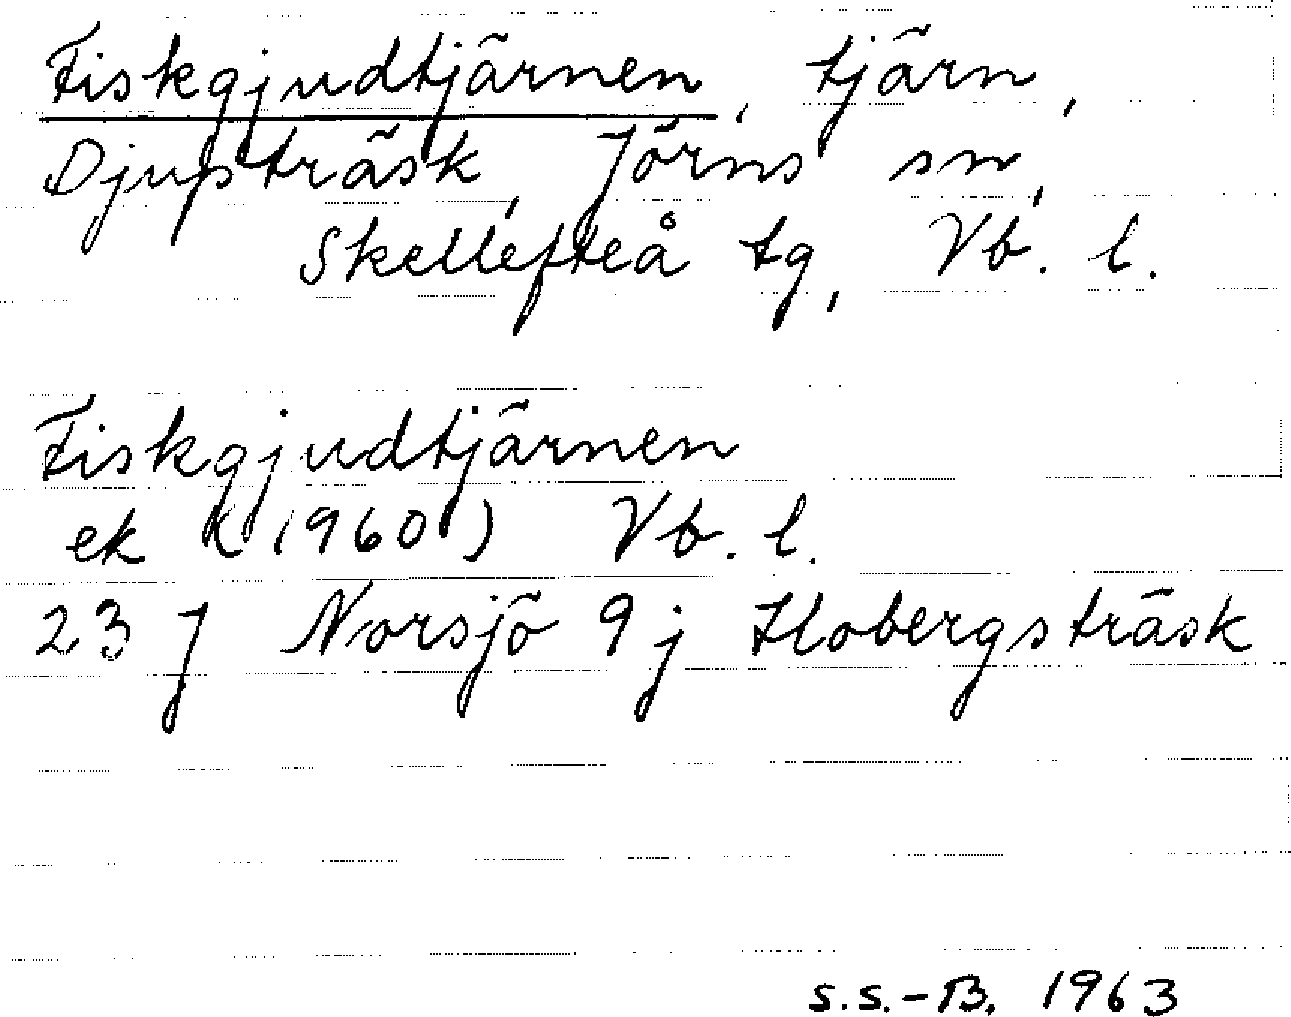 Fiskgjudtjärnen, tjärn,
Djupträsk, Jörns sn,
Skellefteå tg, Vb. l.
Fiskgjudtjärnen
ek k (1960) Vb. l.
23 J Norsjö 9 j Hobergsträsk
S.S.-B. 1963